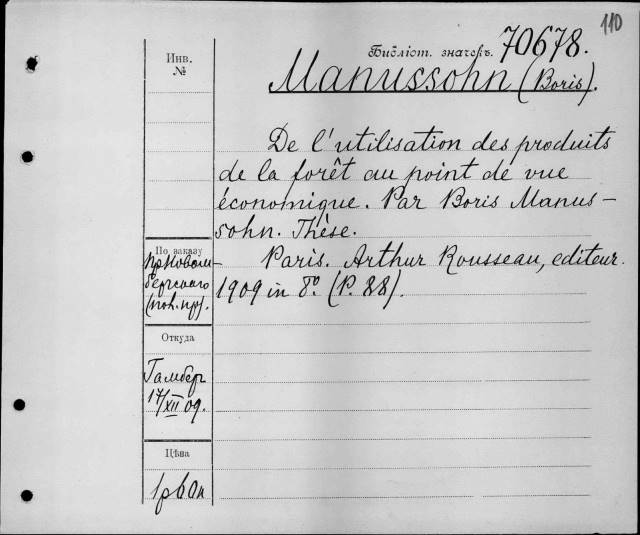 110
Библіот. значекъ. 70678.
Manussohn (Boris).
De l'utilisation des produits
de la forêt au point de vue
économique. Par Boris Manus-
sohn. Thèse.
Paris. Arthur Rousseau, editeur.
1909 in 8º. (P. 88).
Инв.
№
По заказу
Откуда
Гамбер
17/XII 09.
Цѣна
1р60к